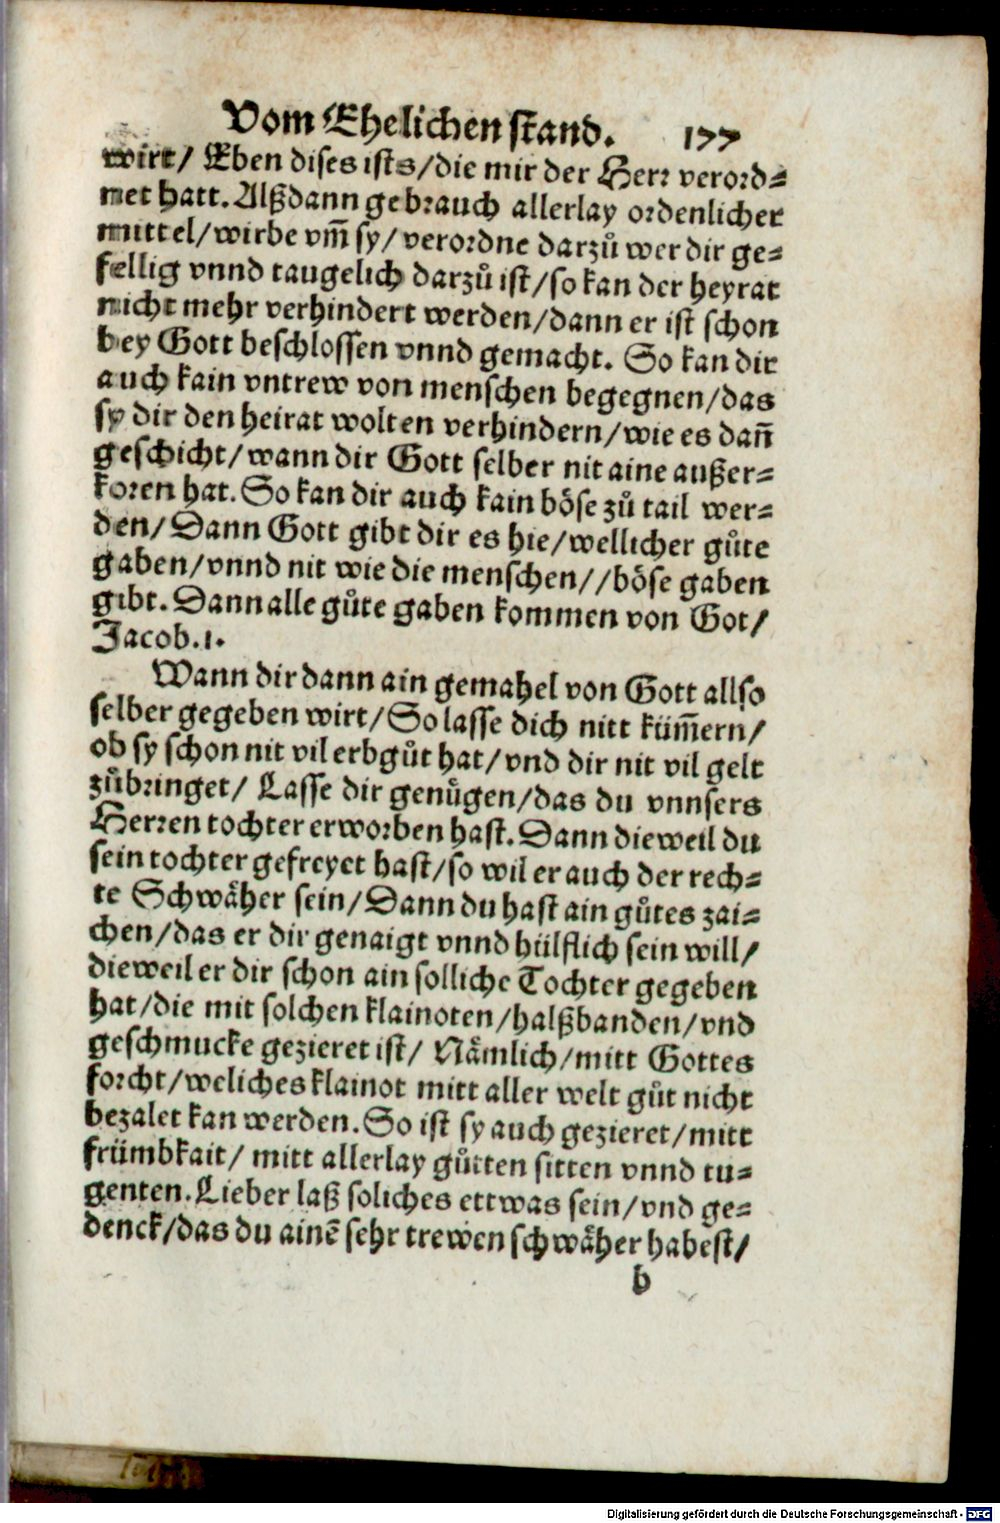 Vom Ehelichen stand. 177
wirt/ Eben dises ists/die mir der Herr verord⸗
net hatt. Alßdann gebrauch allerlay ordenlicher
mittel/wirbe vm̃ sy/ verordne darzů wer dir ge⸗
fellig vnnd taugelich darzů ist/so kan der heyrat
nicht mehr verhindert werden/dann er ist schon
bey Gott beschlossen vnnd gemacht. So kan dir
auch kain vntrew von menschen begegnen/das
sy dir den heirat wolten verhindern/wie es dañ
geschicht/wann dir Gott selber nit aine außer⸗
koren hat. So kan dir auch kain böse zů tail wer⸗
den/Dann Gott gibt dir es hie/wellicher gůte
gaben/vnnd nit wie die menschen//böse gaben
gibt. Dann alle gůte gaben kommen von Got/
Jacob.1.
Wann dir dann ain gemahel von Gott allso
selber gegeben wirt/So lasse dich nitt küm̃ern/
ob sy schon nit vil erbgůt hat/vnd dir nit vil gelt
zůbringet/ Lasse dir genůgen/das du vnnsers
Herren tochter erworben hast. Dann dieweil du
sein tochter gefreyet hast/so wil er auch der rech⸗
te Schwäher sein/Dann du hast ain gůtes zai⸗
chen/das er dir genaigt vnnd hülflich sein will/
dieweil er dir schon ain solliche Tochter gegeben
hat/die mit solchen klainoten/halßbanden/vnd
geschmucke gezieret ist/ Nämlich/mitt Gottes
forcht/weliches klainot mitt aller welt gůt nicht
bezalet kan werden. So ist sy auch gezieret/mitt
frümbkait/ mitt allerlay gůtten sitten vnnd tu⸗
genten. Lieber laß soliches ettwas sein/vnd ge⸗
denck/das du ainē sehr trewen schwäher habest/
b
Digitalisierung gefördert durch die Deutsche Forschungsgemeinschaft - DFG